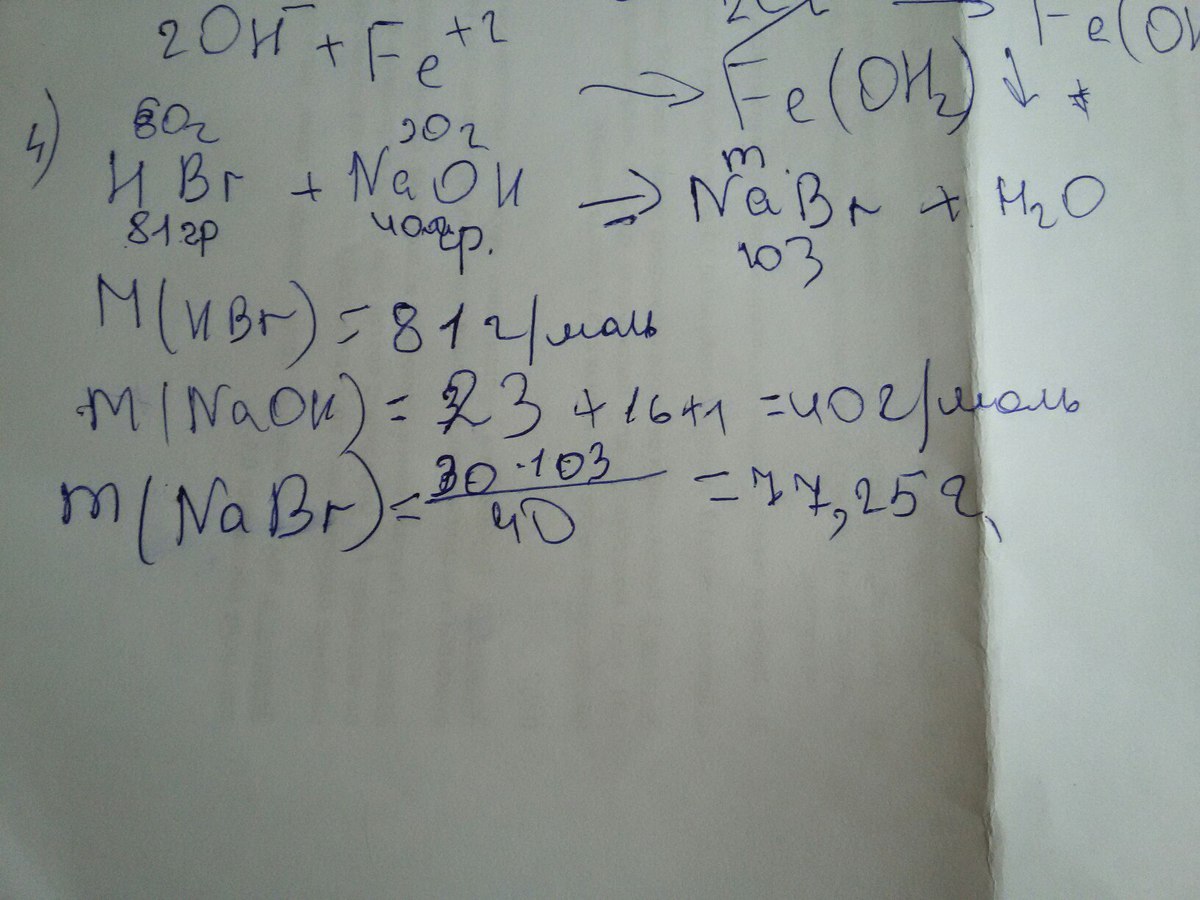 2OH⁻ + Fe⁺² → Fe(OH₂)↓ *
Fe(OH
4)
80г 30г m
HBr + NaOH → NaBr + H₂O
81гр 40 гр. 103
M(HBr) = 81 г/моль
m(NaOH) = 23 + 16+1 = 40 г/моль
m(NaBr) = 30·103/40 = 77,25 г